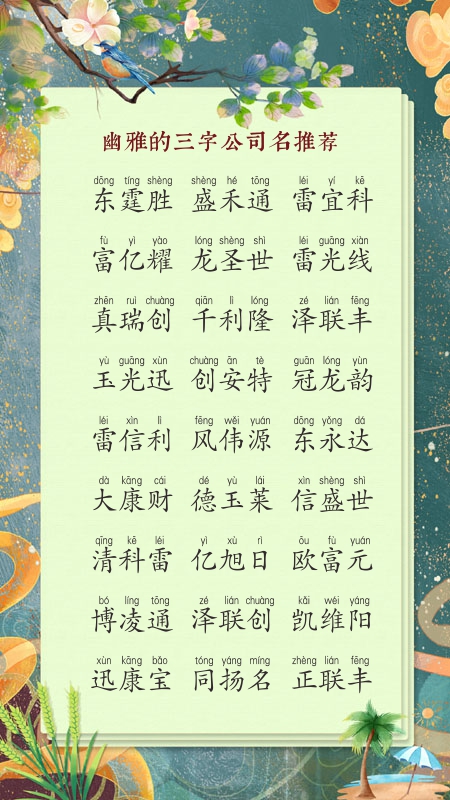 幽雅的三字公司名推荐
dōng tíng shèng shèng hé tōng léi yí kē
东霆胜 盛禾通 雷宜科
fù yì yào lóng shèng shì léi guāng xiàn
富亿耀 龙圣世 雷光线
zhēn ruì chuàng qiān lì lóng zé lián fēng
真瑞创 千利隆 泽联丰
yù guāng xùn chuàng ān tè guān lóng yùn
玉光迅 创安特 冠龙韵
léi xìn lì fēng wěi yuán dōng yǒng dá
雷信利 风伟源 东永达
dà kāng cái dé yù lái xìn shèng shì
大康财 德玉莱 信盛世
qīng kē léi yì xù rì ōu fù yuán
清科雷 亿旭日 欧富元
bó líng tōng zé lián chuàng kǎi wéi yáng
博凌通 泽联创 凯维阳
xùn kāng bǎo tóng yáng míng zhèng lián fēng
迅康宝 同扬名 正联丰